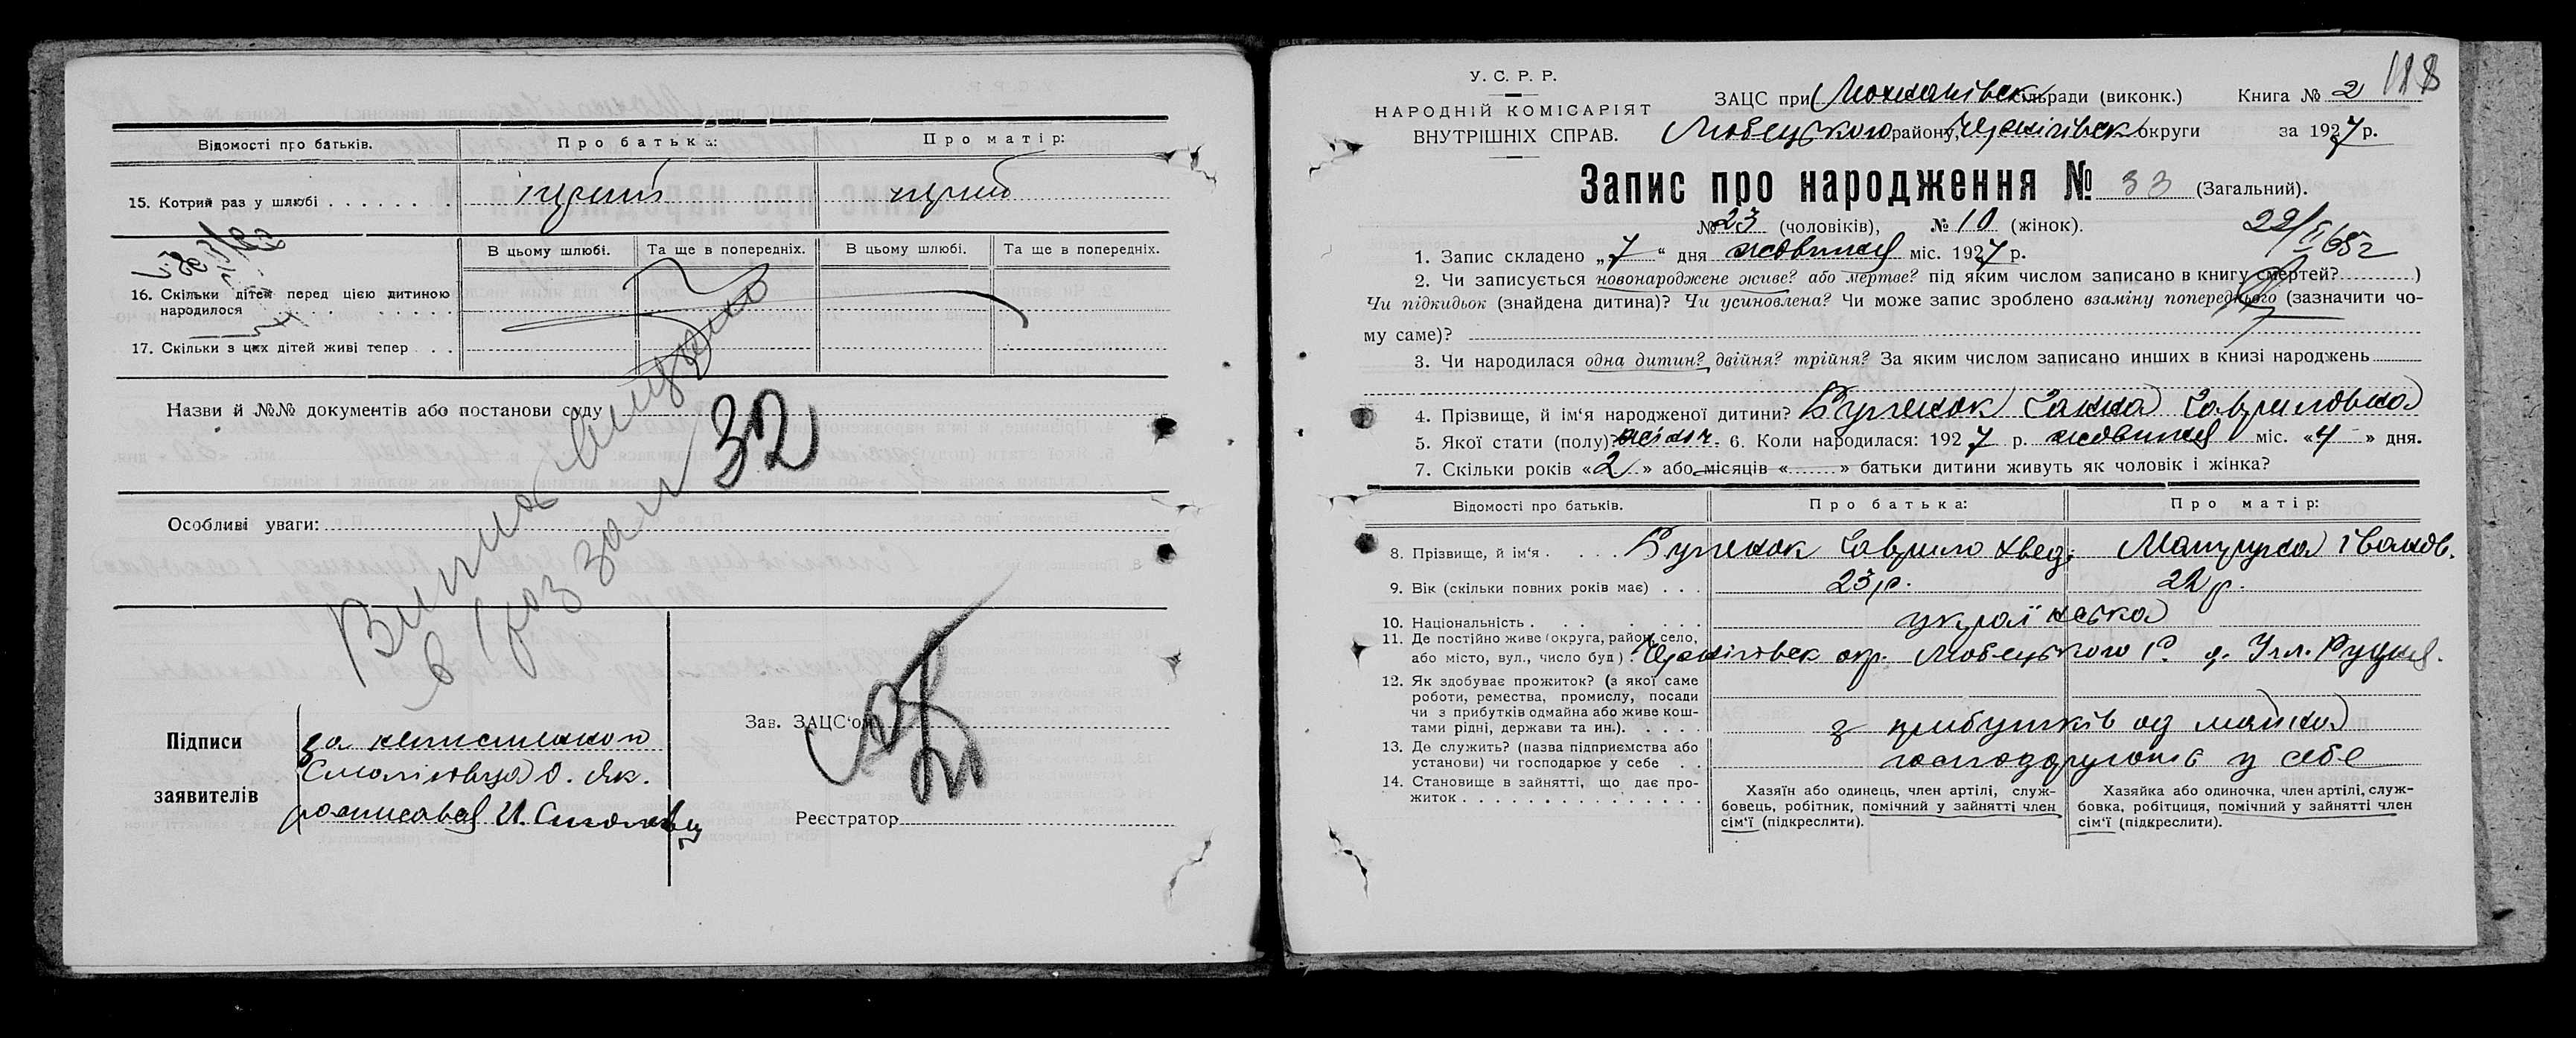 Відомості про батьків.
Про батька:
Про матір:
15. Котрий раз у шлюбі . . . . . . .
перший
перший
В цьому шлюбі.
Та ще в попередніх.
В цьому шлюбі.
Та ще в попередніх.
16. Скільки дітей перед цією дитиною
народилося . . . . . . . . . .
17. Скільки з цих дітей живі тепер . . .
Назви й №№ документів або постанови суду
32
Особливі уваги:
Підписи
заявителів
за неписьмен
росписався И.
Зав. ЗАЦС‘ом
Реєстратор
У. С. Р. Р.
НАРОДНІЙ КОМІСАРІЯТ
ВНУТРІШНІХ СПРАВ.
118
ЗАЦС при Мохнатівск сільради (виконк.) Книга № 2
Любецького району, Чернігівск округи за 1927 р.
Запис про народження № 33 (Загальний).
№ 23 (чоловіків), № 10 (жінок).
1. Запис складено „7“ дня жовтня міс. 1927 р.
2. Чи записується новонароджене живе? або мертве? під яким числом записано в книгу смертей? )
Чи підкидьок (знайдена дитина)? Чи усиновлена? Чи може запис зроблено взаміну попереднього (зазначити чо-
му саме)?
3. Чи народилася одна дитин? двійня? трійня? За яким числом записано инших в книзі народжень
4. Прізвище, й ім‘я народженої дитини? Ганна Гавриловна
5. Якої стати (полу)? жіноч. 6. Коли народилася: 1927 р. жовтня міс. «4» дня.
7. Скільки років «2» або місяців « » батьки дитини живуть як чоловік і жінка?
Відомості про батьків.
Про батька:
Про матір:
8. Прізвище, й ім‘я . . . . Гаврило Хвед. Івановн.
9. Вік (скільки повних років має) . . . 23 р. 22 р.
10. Національність . . . . . . . українська
11. Де постійно живе (округа, район, село,
або місто, вул., число буд) . Чернігівск окр. Любецького Р.
12. Як здобуває прожиток? (з якої саме
роботи, ремества, промислу, посади
чи з прибутків одмайна або живе кош-
тами рідні, держави та ин.). . . . . з прибутків од майна
13. Де служить? (назва підприємства або
установи) чи господарює у себе . . господарюють у себе
14. Становище в зайнятті, що дає про-
житок . . . . . . . . . . . . . . .
Хазяїн або одинець, член артілі, служ-
бовець, робітник, помічний у зайнятті член
сім‘ї (підкреслити).
Хазяйка або одиночка, член артілі, служ-
бовка, робітциця, помічний у зайнятті член
сім‘ї (підкреслити).